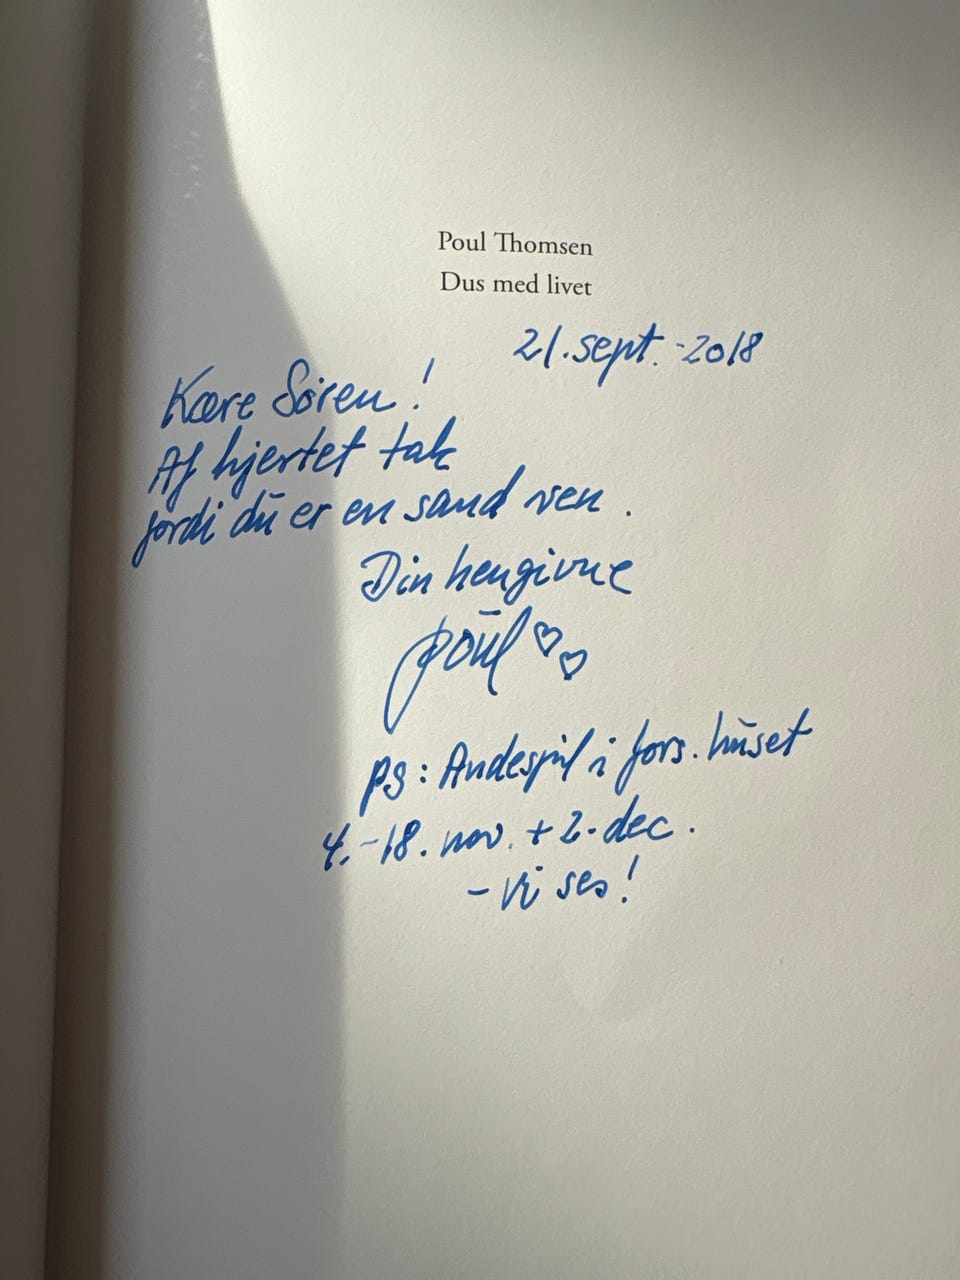 Poul Thomsen
Dus med livet
21. sept. -2018
Kære Søren!
Af hjertet tak
fordi du er en sand ven.
Din hengivne
Poul ♡♡
ps: Andespil i fors. huset
4.-18. nov. + 2. dec.
- vi ses!